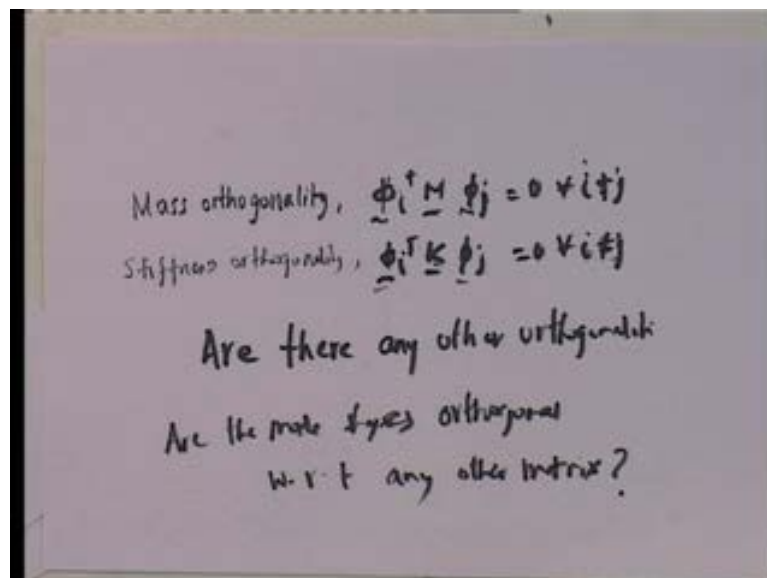 Mass orthogonality, ϕᵢᵀ M ϕⱼ = 0 ∀ i ≠ j
Stiffness orthogonality, ϕᵢᵀ K ϕⱼ = 0 ∀ i ≠ j
Are there any other
Are the mode shapes orthogonal
w.r.t any other matrix?